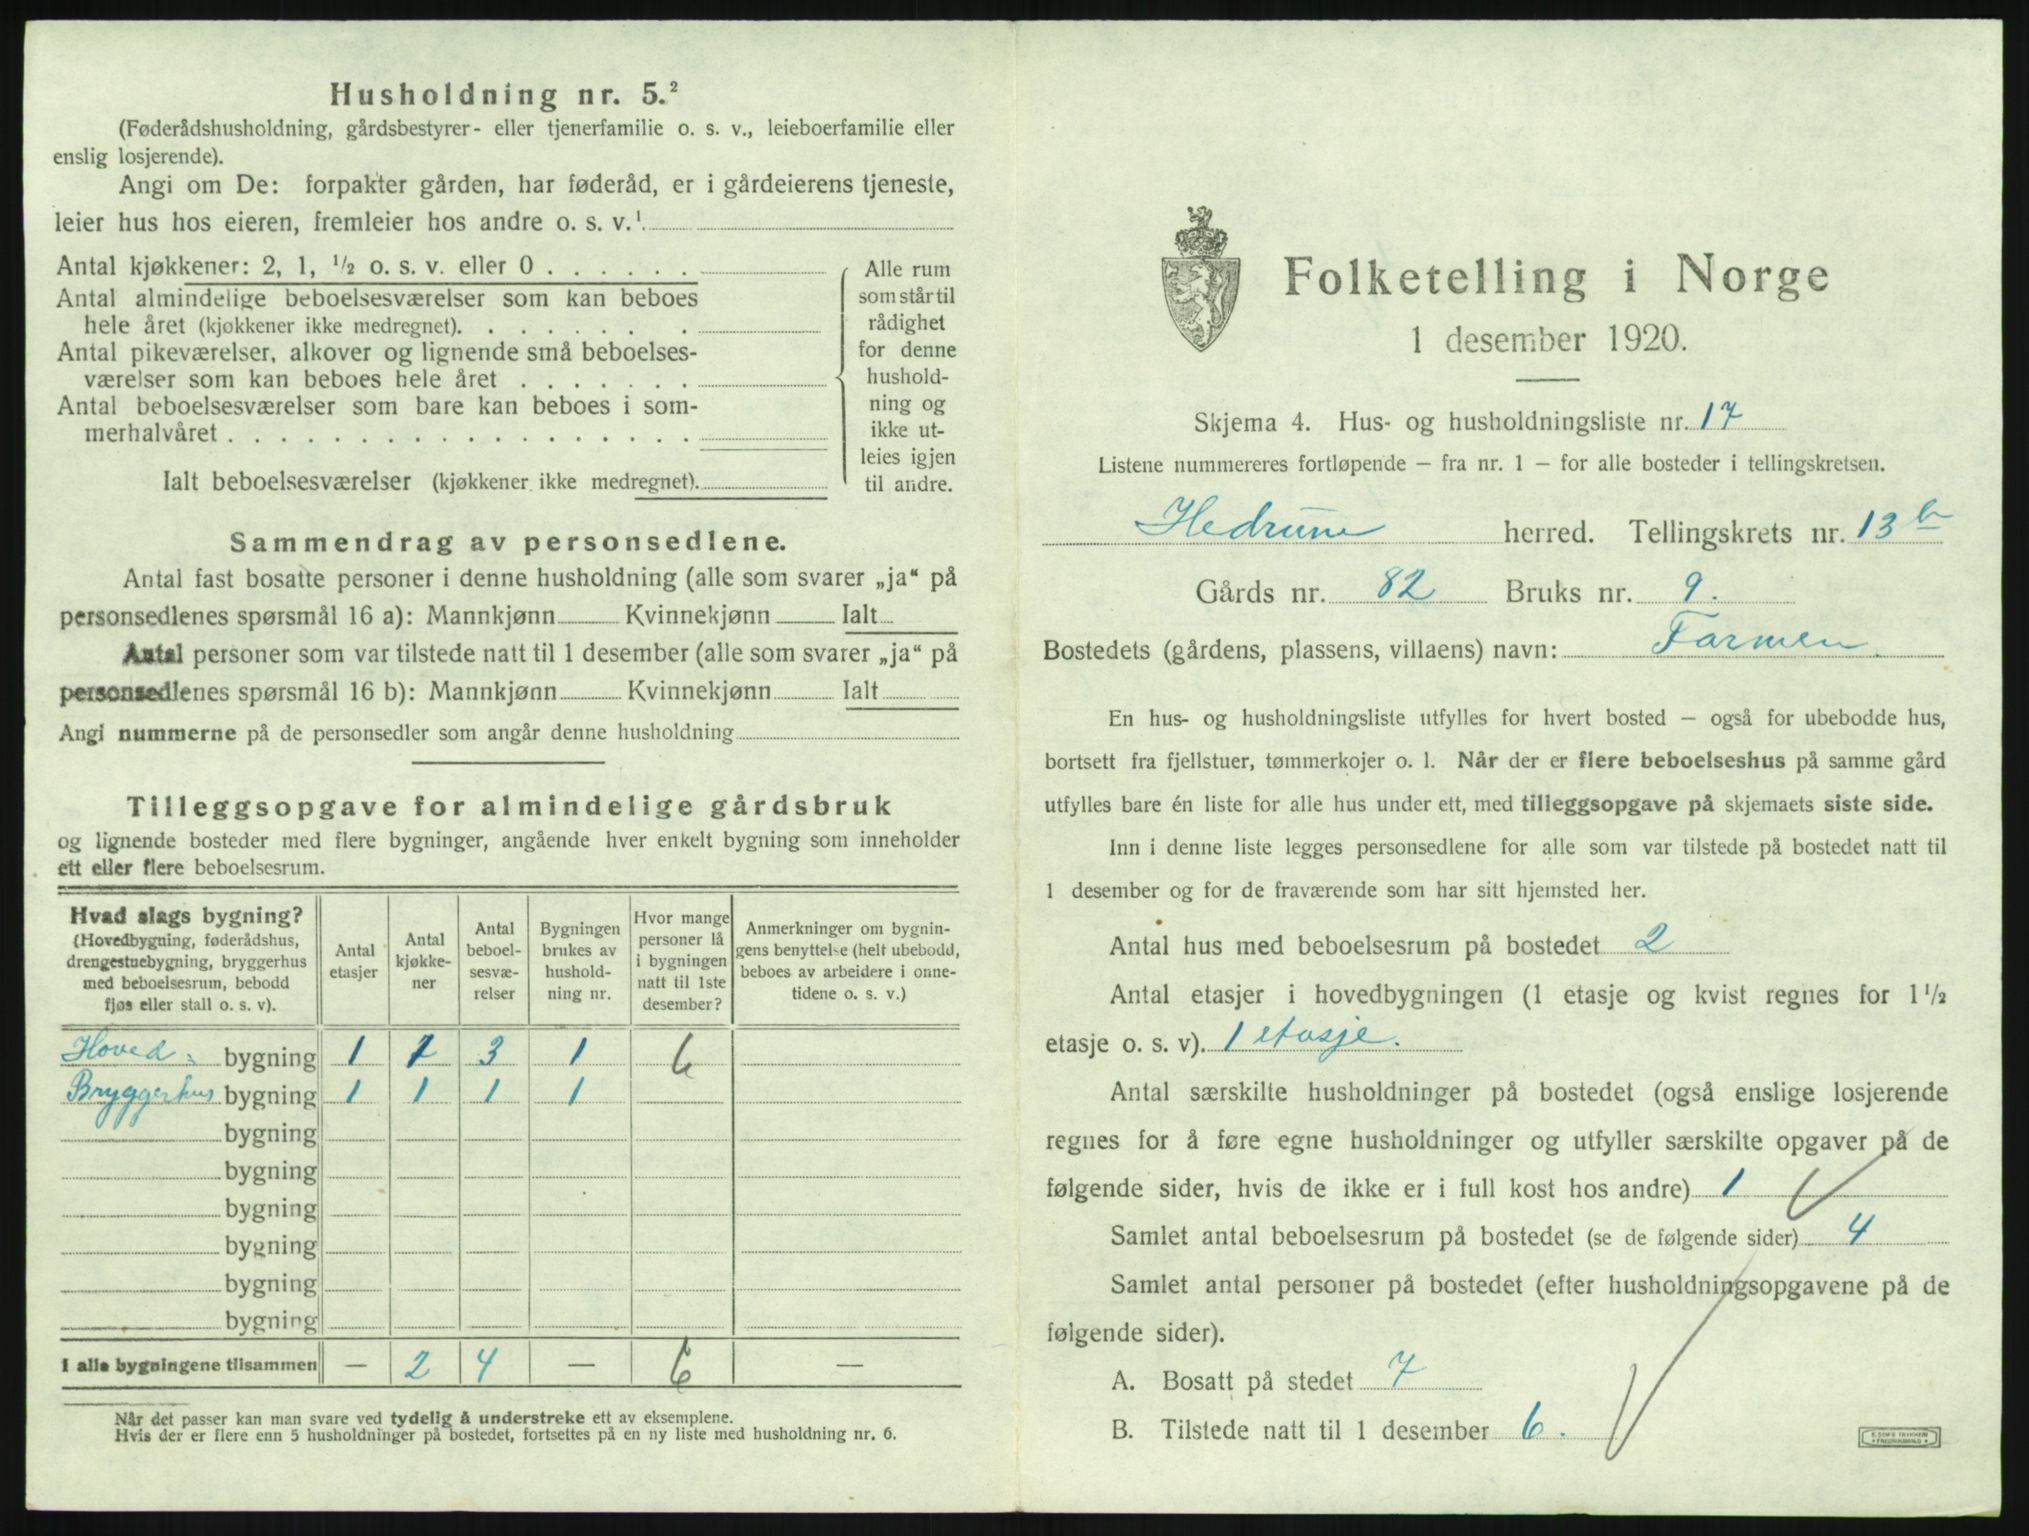 Husholdning nr. 5.²
(Føderådshusholdning, gårdsbestyrer- eller tjenerfamilie o. s. v., leieboerfamilie eller
enslig losjerende).
Angi om De: forpakter gården, har føderåd, er i gårdeierens tjeneste,
leier hus hos eieren, fremleier hos andre o. s. v.¹
Antal kjøkkener: 2, 1, ½ o. s. v. eller 0 . . . . . .
Antal almindelige beboelsesværelser som kan beboes
hele året (kjøkkener ikke medregnet). . . . . . . .
Antal pikeværelser, alkover og lignende små beboelses-
værelser som kan beboes hele året . . . . . . .
Antal beboelsesværelser som bare kan beboes i som-
merhalvåret . . . . . . . . . . . . . . . . . .
Ialt beboelsesværelser (kjøkkener ikke medregnet).
Alle rum
som står til
rådighet
for denne
hushold-
ning og
ikke ut-
leies igjen
til andre.
Sammendrag av personsedlene.
Antal fast bosatte personer i denne husholdning (alle som svarer „ja“ på
personsedlenes spørsmål 16 a): Mannkjønn Kvinnekjønn Ialt
Antal personer som var tilstede natt til 1 desember (alle som svarer „ja“ på
personsedlenes spørsmål 16 b): Mannkjønn Kvinnekjønn Ialt
Angi nummerne på de personsedler som angår denne husholdning
Tilleggsopgave for almindelige gårdsbruk
og lignende bosteder med flere bygninger, angående hver enkelt bygning som inneholder
ett eller flere beboelsesrum.
Hvad slags bygning?
(Hovedbygning, føderådshus,
drengestuebygning, bryggerhus
med beboelsesrum, bebodd
fjøs eller stall o. s. v).
Antal
etasjer
Antal
kjøkke-
ner
Antal
beboel-
sesvæ-
relser
Bygningen
brukes av
hushold-
ning nr.
Hvor mange
personer lå
i bygningen
natt til 1ste
desember?
Anmerkninger om bygnin-
gens benyttelse (helt ubebodd,
beboes av arbeidere i onne-
tidene o. s. v.)
Hoved: bygning 1 1 3 1 6
Bryggerhus bygning 1 1 1 1
bygning
bygning
bygning
bygning
bygning
bygning
I alle bygningene tilsammen — 2 4 — 6 —
Når det passer kan man svare ved tydelig å understreke ett av eksemplene.
Hvis der er flere enn 5 husholdninger på bostedet, fortsettes på en ny liste med husholdning nr. 6.
Folketelling i Norge
1 desember 1920.
Skjema 4. Hus- og husholdningsliste nr. 17
Listene nummereres fortløpende — fra nr. 1 — for alle bosteder i tellingskretsen.
Hedrum herred. Tellingskrets nr. 13 b
Gårds nr. 82 Bruks nr. 9.
Bostedets (gårdens, plassens, villaens) navn: Farmen.
En hus- og husholdningsliste utfylles for hvert bosted — også for ubebodde hus,
bortsett fra fjellstuer, tømmerkojer o. l. Når der er flere beboelseshus på samme gård
utfylles bare én liste for alle hus under ett, med tilleggsopgave på skjemaets siste side.
Inn i denne liste legges personsedlene for alle som var tilstede på bostedet natt til
1 desember og for de fraværende som har sitt hjemsted her.
Antal hus med beboelsesrum på bostedet 2
Antal etasjer i hovedbygningen (1 etasje og kvist regnes for 1½
etasje o. s. v). 1 etasje.
Antal særskilte husholdninger på bostedet (også enslige losjerende
regnes for å føre egne husholdninger og utfyller særskilte opgaver på de
følgende sider, hvis de ikke er i full kost hos andre) 1
Samlet antal beboelsesrum på bostedet (se de følgende sider) 4
Samlet antal personer på bostedet (efter husholdningsopgavene på de
følgende sider).
A. Bosatt på stedet 7
B. Tilstede natt til 1 desember 6.